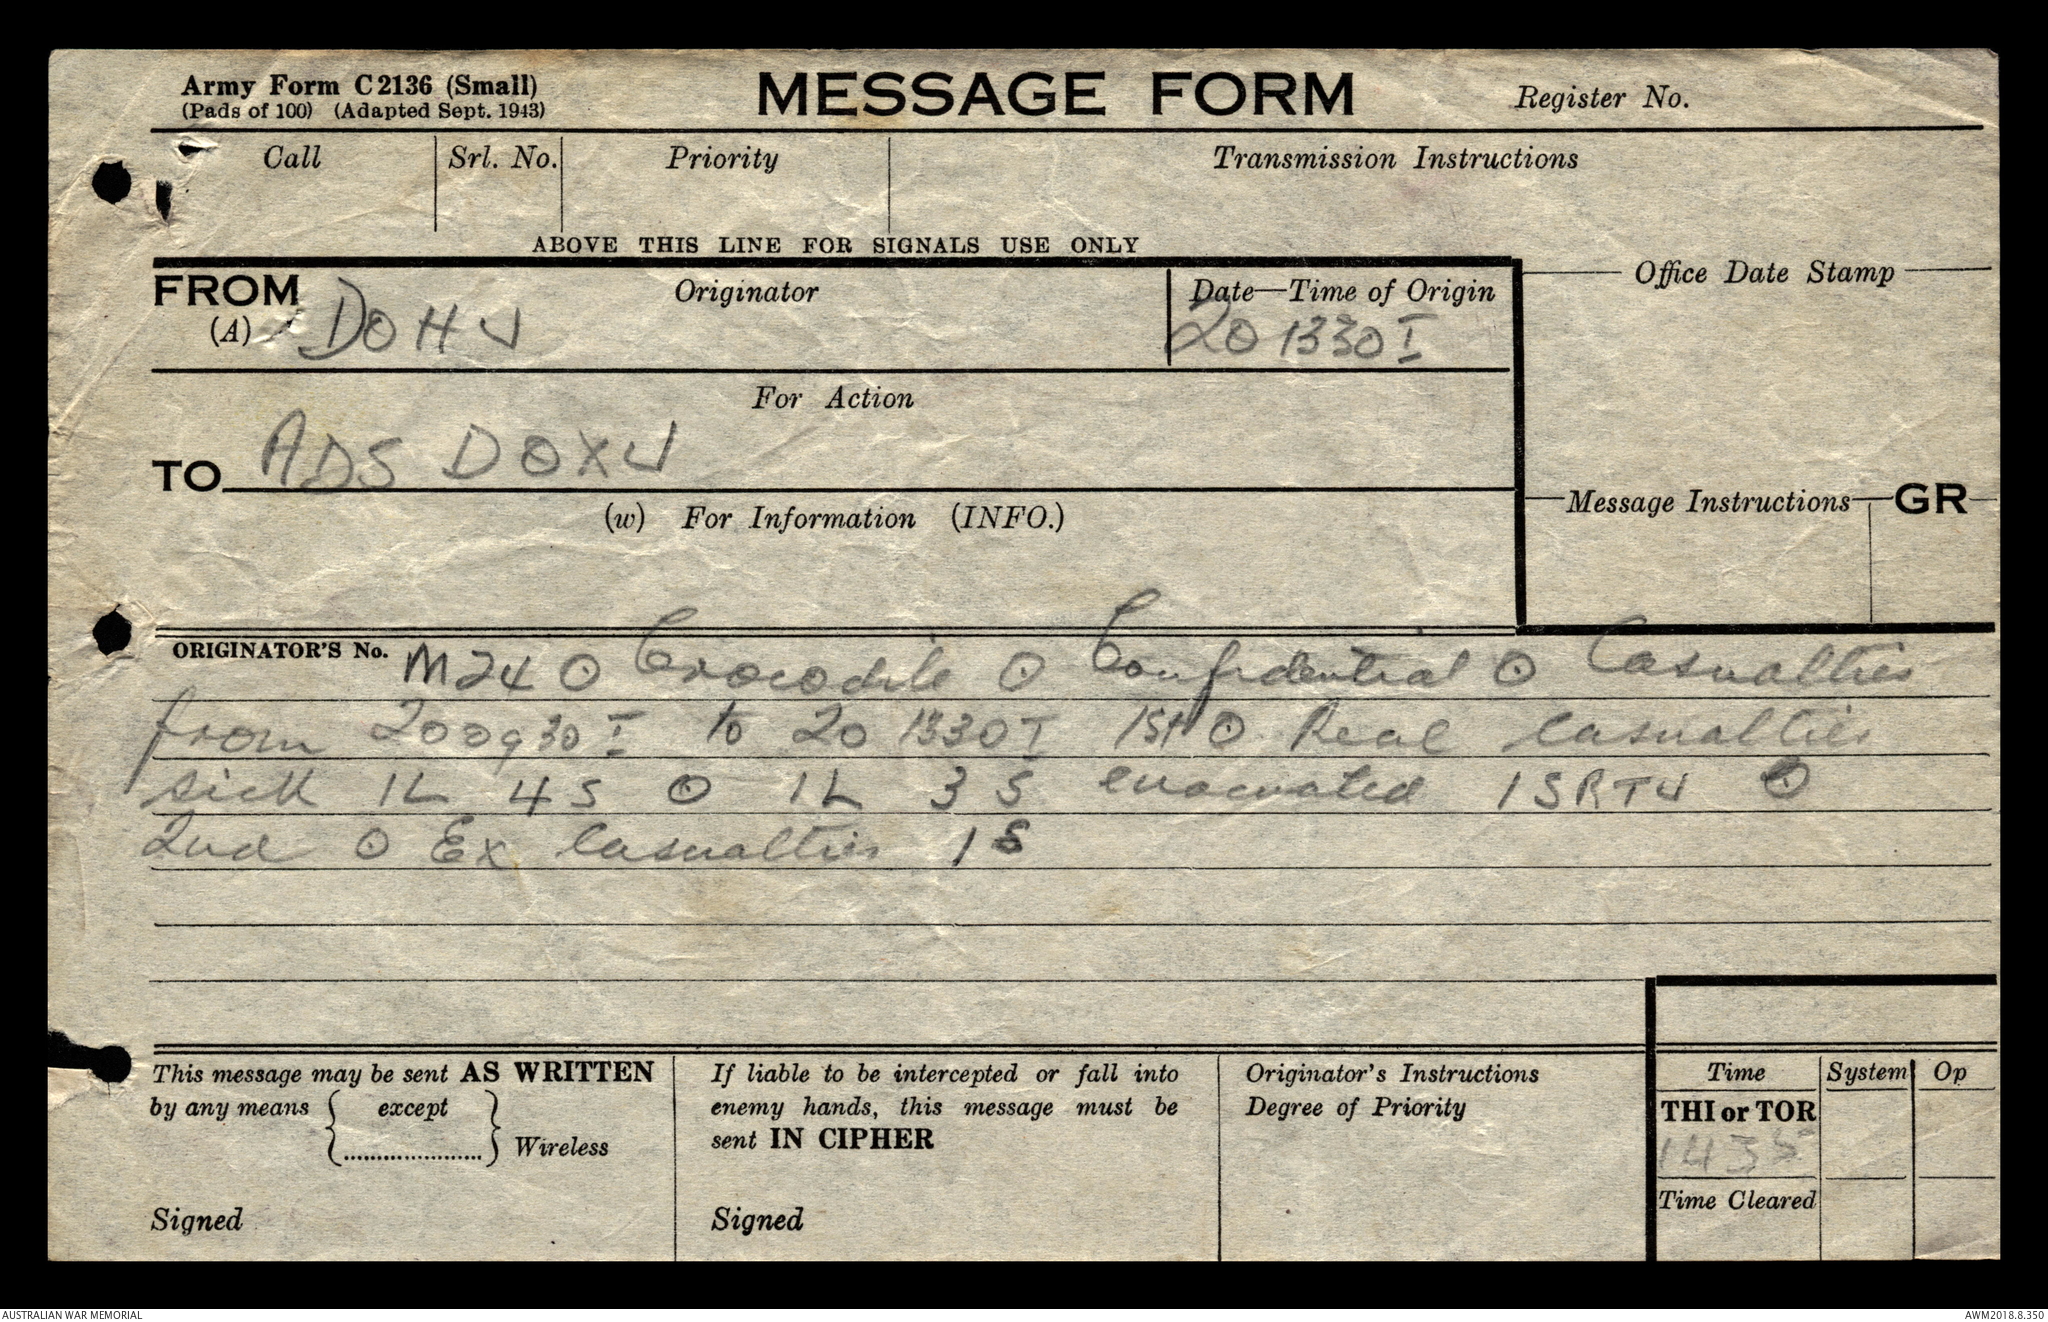 Army Form C2136 (Small)
(Pads of 100) (Adapted Sept. 1943)
MESSAGE FORM
Register No.
Call
Srl. No.
Priority
Transmission Instructions
ABOVE THIS LINE FOR SIGNALS USE ONLY
FROM
(A)
DOHU
Originator
Date—Time of Origin
201330I
Office Date Stamp
For Action
TO
ADS DOXU
(w) For Information (INFO.)
Message Instructions
GR
ORIGINATOR'S No. M24 ⊙ Crocodile ⊙ Confidential ⊙ Casualties
from 200930I to 201330I 1st ⊙ Real casualties
sick 1L 4S ⊙ 1L 3S evacuated 1S RTU ⊙
2nd ⊙ Ex casualties 1S
This message may be sent AS WRITTEN
by any means { except
..................... } Wireless
Signed
If liable to be intercepted or fall into
enemy hands, this message must be
sent IN CIPHER
Signed
Originator's Instructions
Degree of Priority
Time
System
Op
THI or TOR
1435
Time Cleared
AUSTRALIAN WAR MEMORIAL
AWM2018.8.350